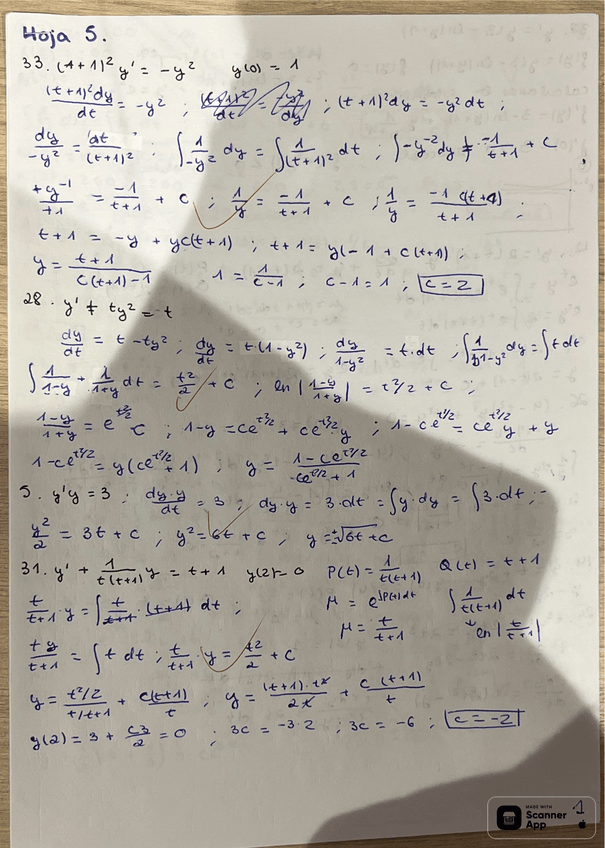 Hoja 5.
33. (t+1)² y' = -y²   y(0) = 1
(t+1)² dy/dt = -y² ; (t+1)² dy = -y² dt ;
dy/-y² = dt/(t+1)² ; ∫ 1/-y² dy = ∫ 1/(t+1)² dt ; ∫ -y⁻² dy = -1/t+1 + C
+y⁻¹/+1 = -1/t+1 + C ; 1/y = -1/t+1 + C ; 1/y = -1 C(t+1)/t+1 ;
t+1 = -y + yC(t+1) ; t+1 = y(-1 + C(t+1) ;
y = t+1/C(t+1)-1   1 = 1/C-1 ; C-1 = 1 ; C = 2
28. y' + ty² = t
dy/dt = t - ty² ; dy/dt = t·(1-y²) ; dy/1-y² = t·dt ; ∫ 1/1-y² dy = ∫ t dt
∫ 1/1-y + 1/1+y dt = t²/2 + C ; ln |1-y/1+y| = t²/2 + C ;
1-y/1+y = e^t²/2 C ; 1-y = ce^t²/2 + ce^t²/2 · y ; 1 - ce^t²/2 = ce^t²/2 y + y
1-ce^t²/2 = y(ce^t²/2 + 1) ; y = 1-ce^t²/2/ce^t²/2 + 1
5. y'y = 3 ; dy·y/dt = 3 ; dy·y = 3·dt = ∫ y·dy = ∫ 3·dt ;
y²/2 = 3t + c ; y² = 6t + c ; y = ±√6t+c
31. y' + 1/t(t+1) y = t+1   y(2) = 0   P(t) = 1/t(t+1)   Q(t) = t+1
t/t+1 · y = ∫ t/t+1 · (t+1) dt ;   μ = e^∫P(t)dt   ∫ 1/t(t+1) dt
ty/t+1 = ∫ t dt ; t/t+1 · y = t²/2 + C   μ = t/t+1   ln |t/t+1|
y = t²/2/t/t+1 + C(t+1)/t ; y = (t+1)·t²/2t + C(t+1)/t
y(2) = 3 + C3/2 = 0 ; 3C = -3·2 ; 3C = -6 ; C = -2
MADE WITH
Scanner
App
1